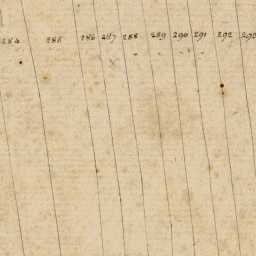 284 285 286 287 288 289 290 291 292 293